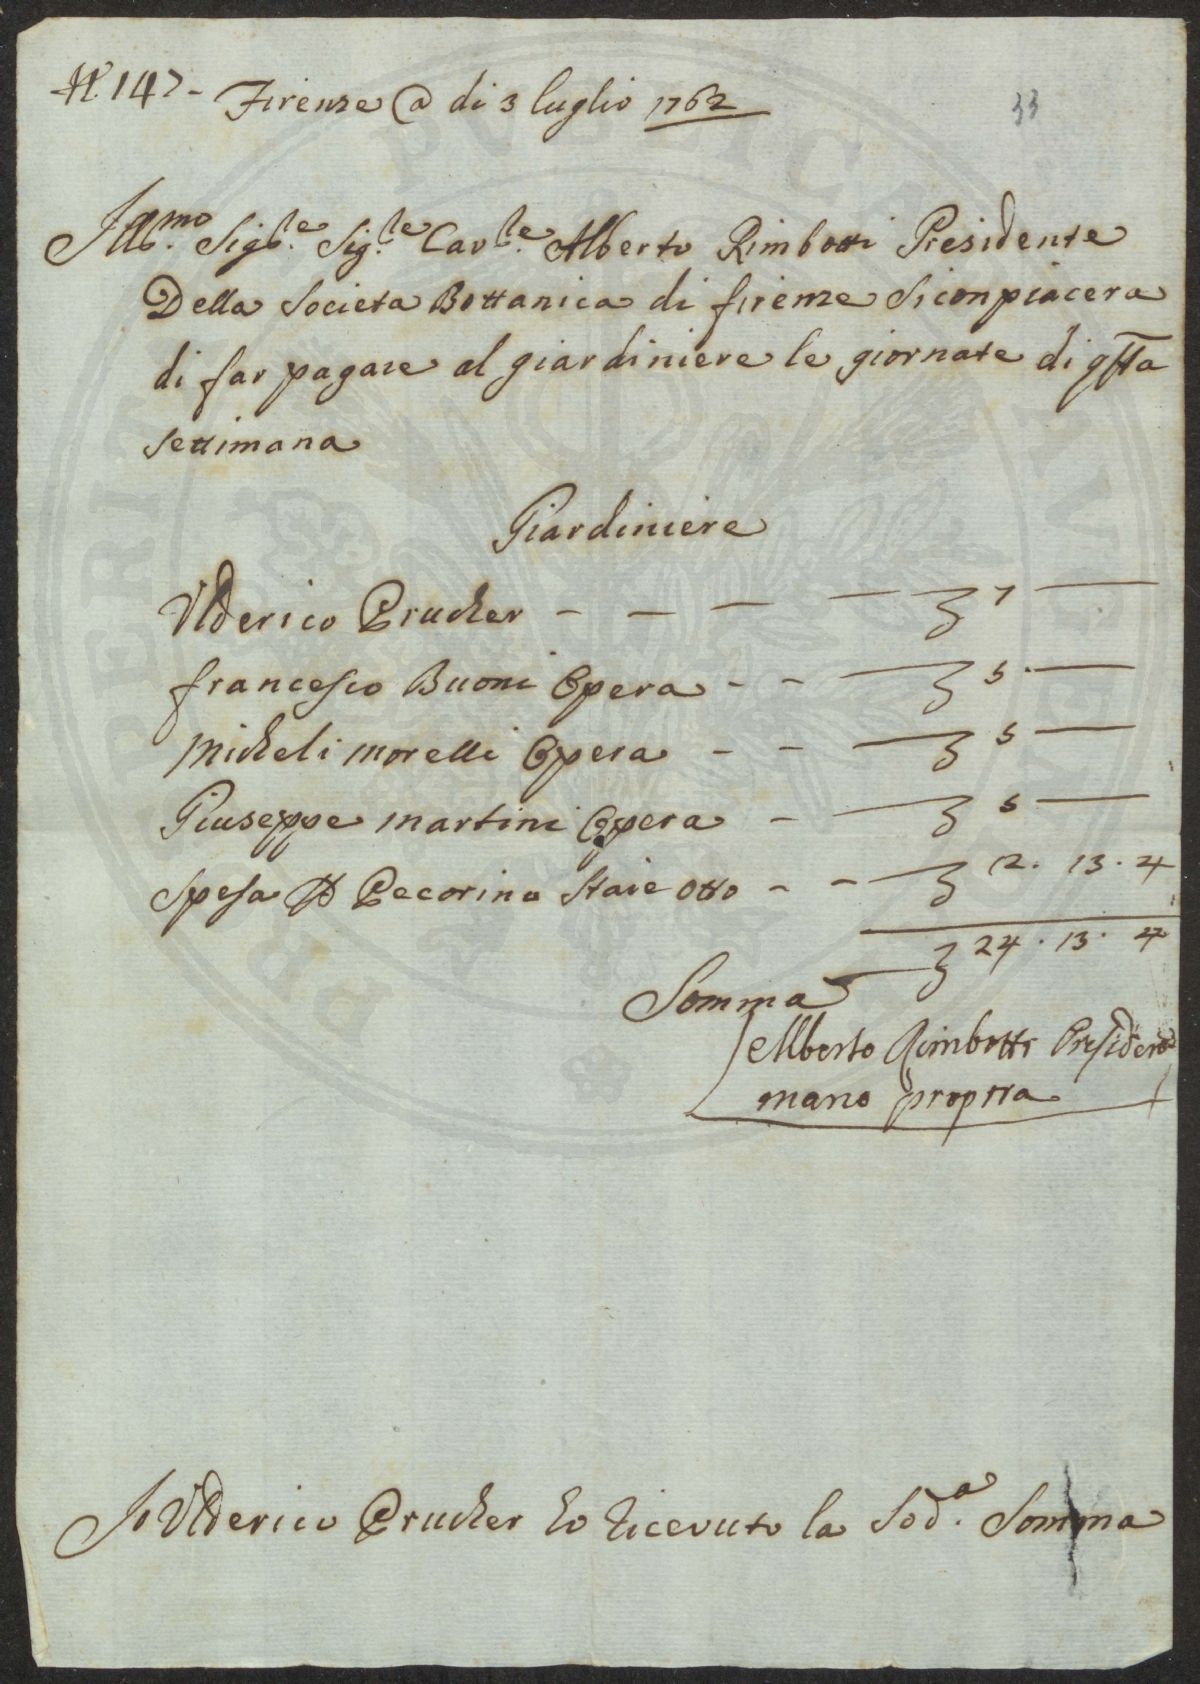 N. 147 - Firenze @ di 3 luglio 1762
33
Ill.mo Sig.re Sig.re Cav.re Alberto Rimbotti Presidente
Della Societa Bottanica di firenze si conpiacera
di far pagare al giardiniere le giornate di qsta
settimana
Giardiniere
Vlderico Prucker - - - - 7 -
francesco Buoni Opera - - - 5. -
Micheli morelli Opera - - - 5 -
Giuseppe martini Opera - - 5 -
Spesa P Pecorino Staie otto - - - 12. 13. 4
24. 13. 4
Somma
Alberto Rimbotti
mano propria
Io Vlderico Prucker ho ricevuto la Sod.a Somma